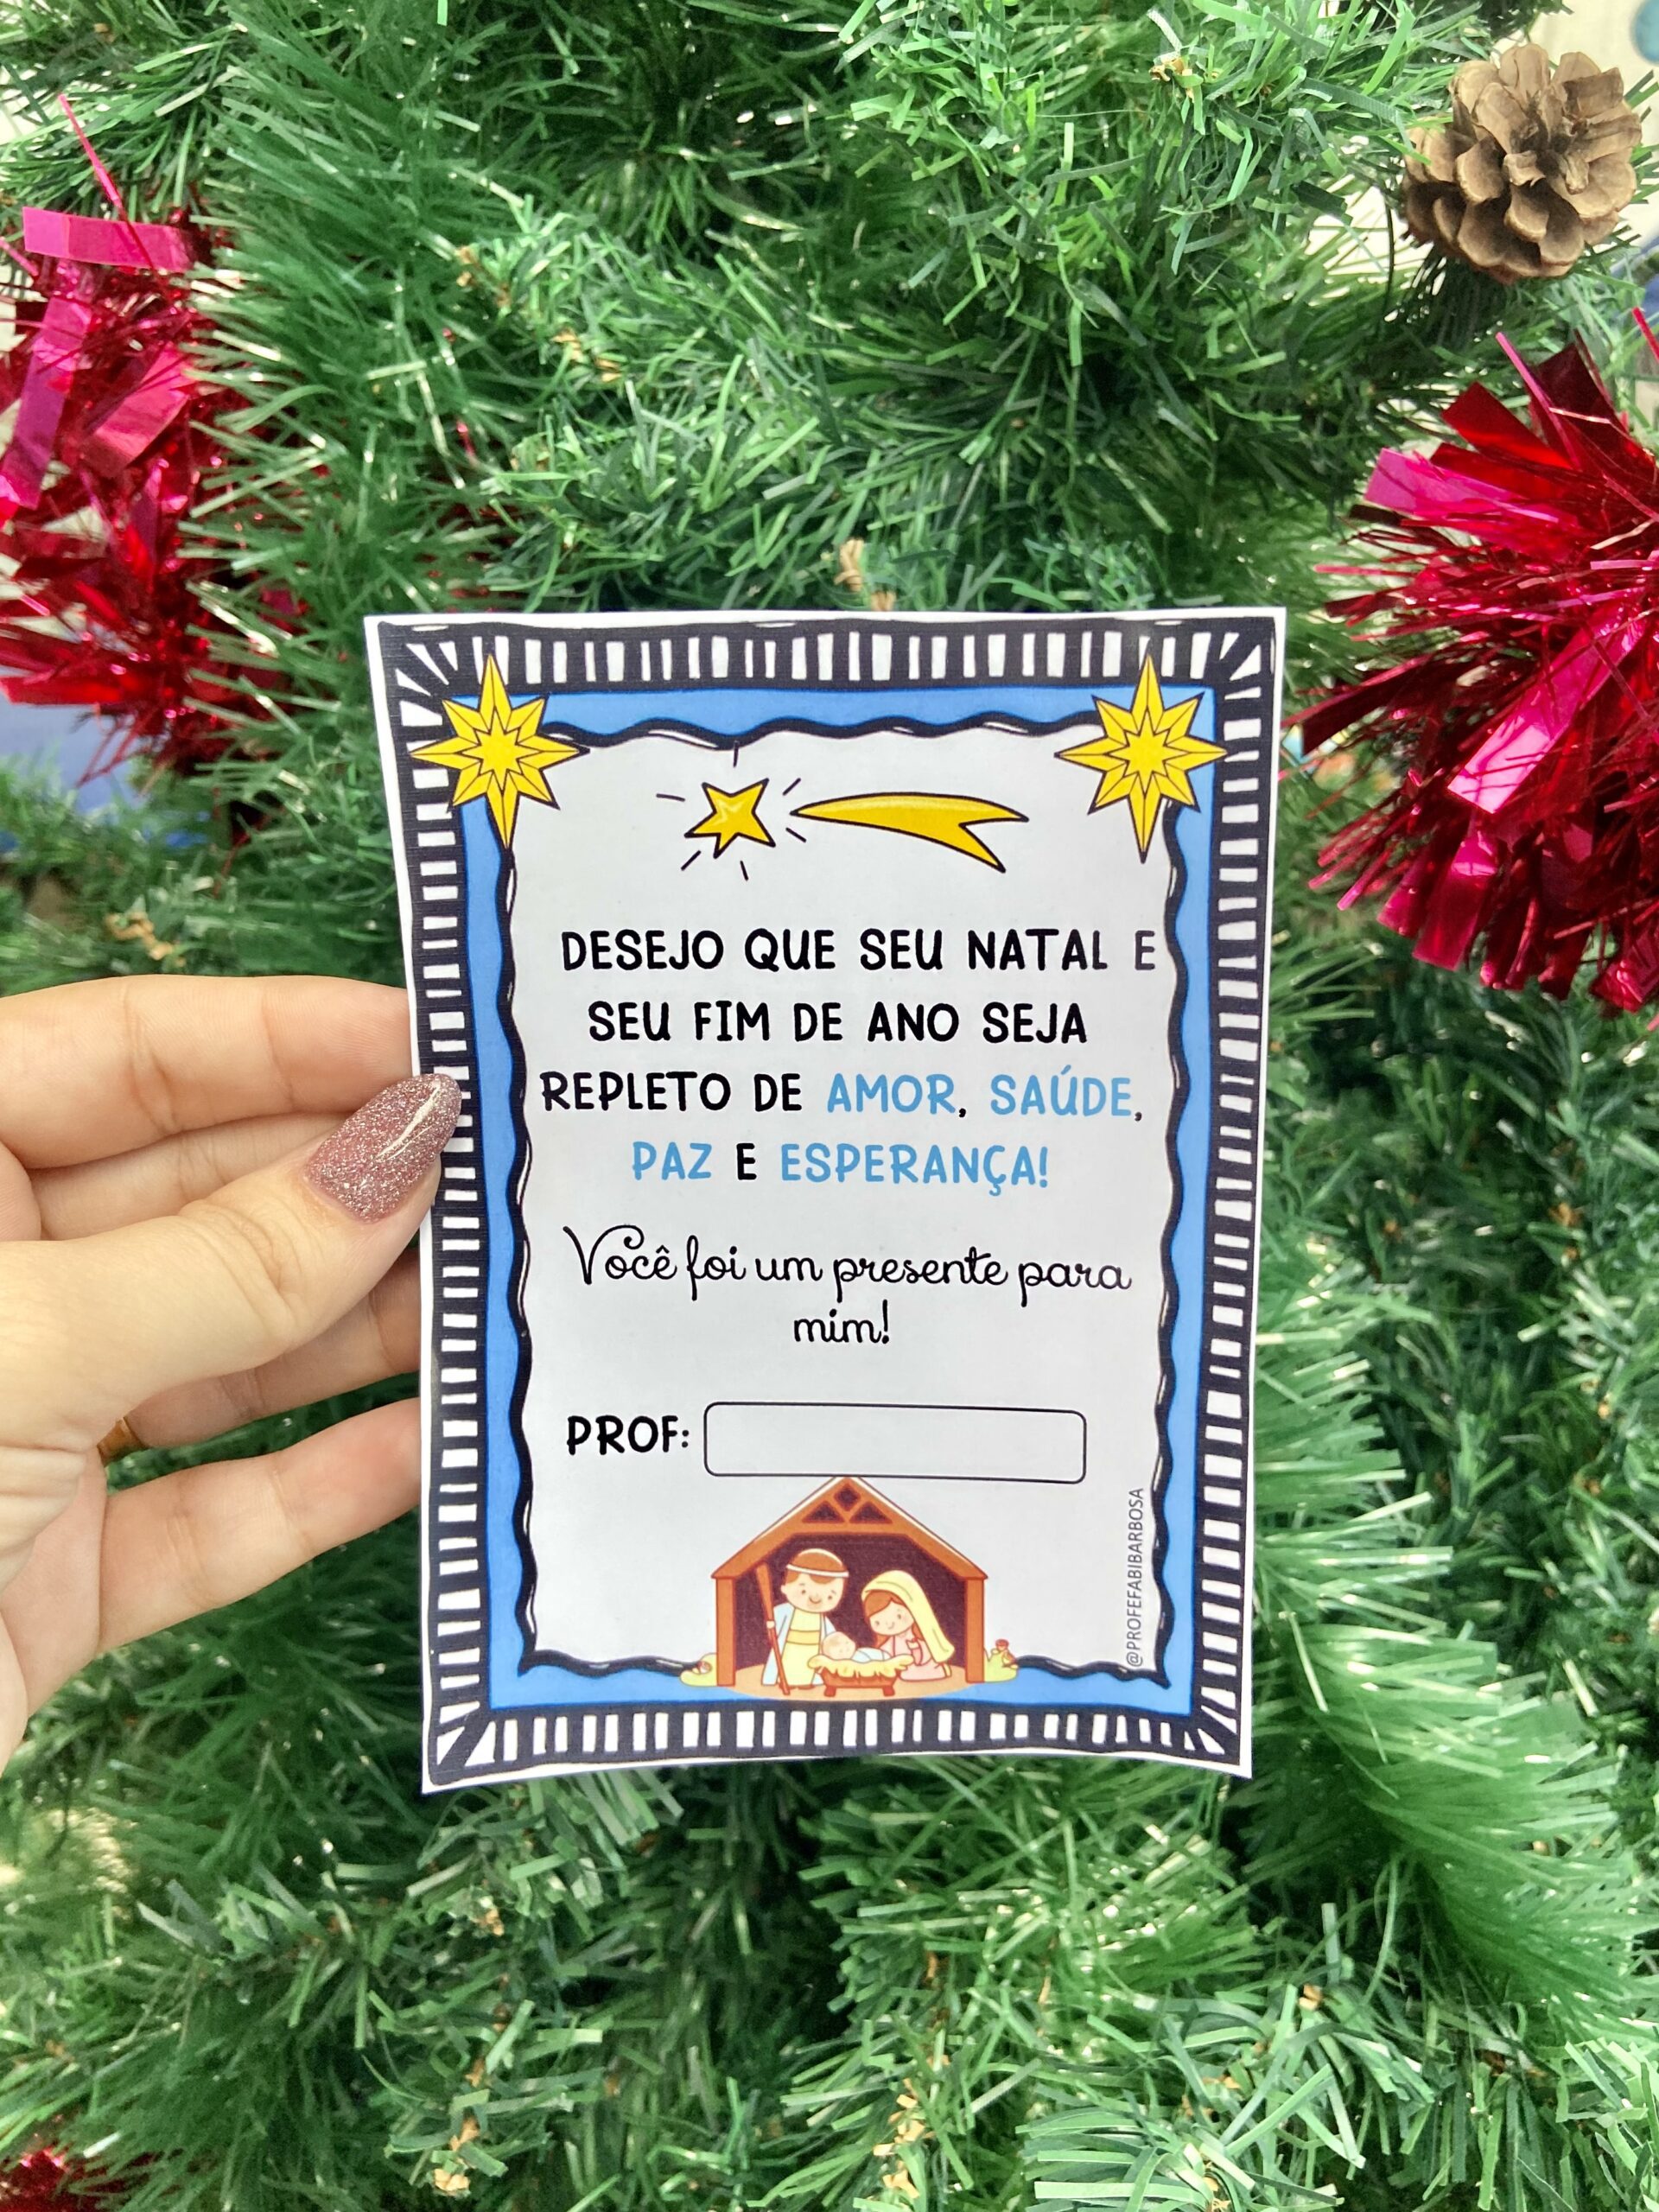 DESEJO QUE SEU NATAL E
SEU FIM DE ANO SEJA
REPLETO DE AMOR, SAÚDE,
PAZ E ESPERANÇA!
Você foi um presente para
mim!
PROF:
@PROFEFABIBARBOSA